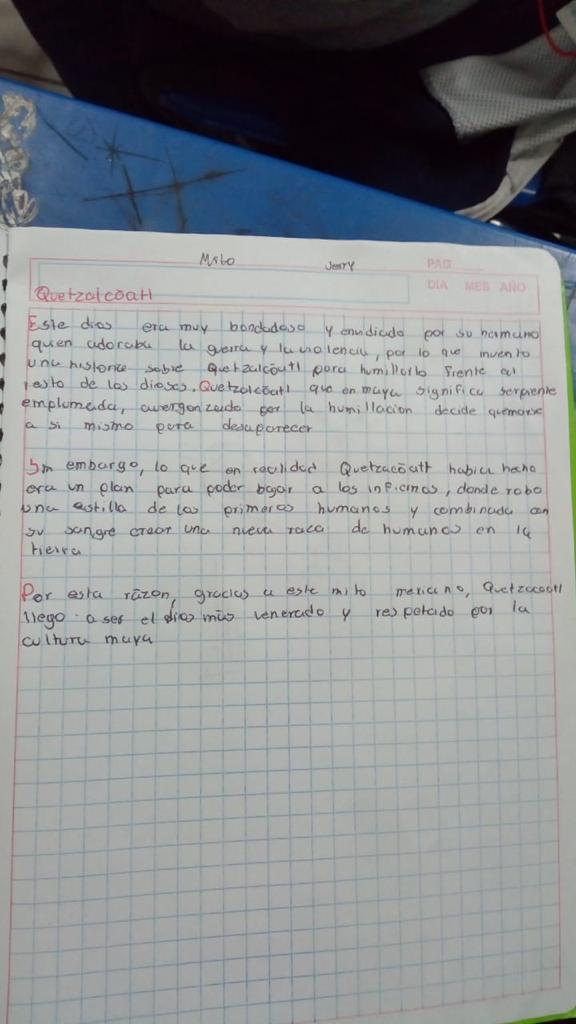 Mito Jenry
PAG
DIA MES AÑO
Quetzalcōatl
Este dios era muy bondadoso y envidiado por su hermano
quien adoraba la guerra y la violencia, por lo que invento
una historia sobre Quetzalcōatl para humillarlo frente al
resto de los dioses. Quetzalcōatl que en maya significa serpiente
emplumada, avergonzado por la humillacion decide quemarse
a si mismo para desaparecer
Sin embargo, lo que en realidad Quetzacōatl habia hecho
era un plan para poder bajar a los infiernos, donde robo
una astilla de los primeros humanos y combinada con
su sangre crear una nueva raza de humanos en la
tierra
Por esta razon, gracias a este mito mexicano, Quetzacoatl
llego a ser el dios más venerado y respetado por la
cultura maya